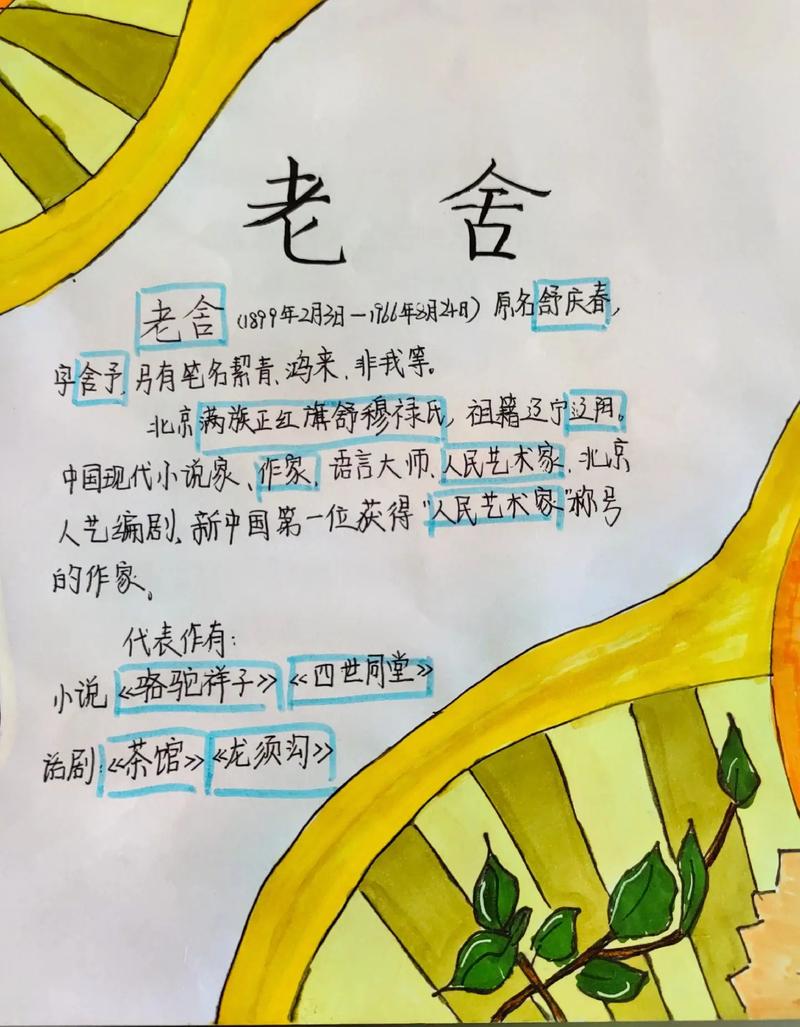 老舍
老舍(1899年2月3日—1966年8月24日)原名舒庆春,
字舍予,另有笔名絜青、鸿来、非我等。
北京满族正红旗舒穆禄氏,祖籍辽宁辽阳。
中国现代小说家、作家,语言大师、人民艺术家、北京
人艺编剧、新中国第一位获得“人民艺术家”称号
的作家。
代表作有:
小说《骆驼祥子》《四世同堂》
话剧:《茶馆》《龙须沟》